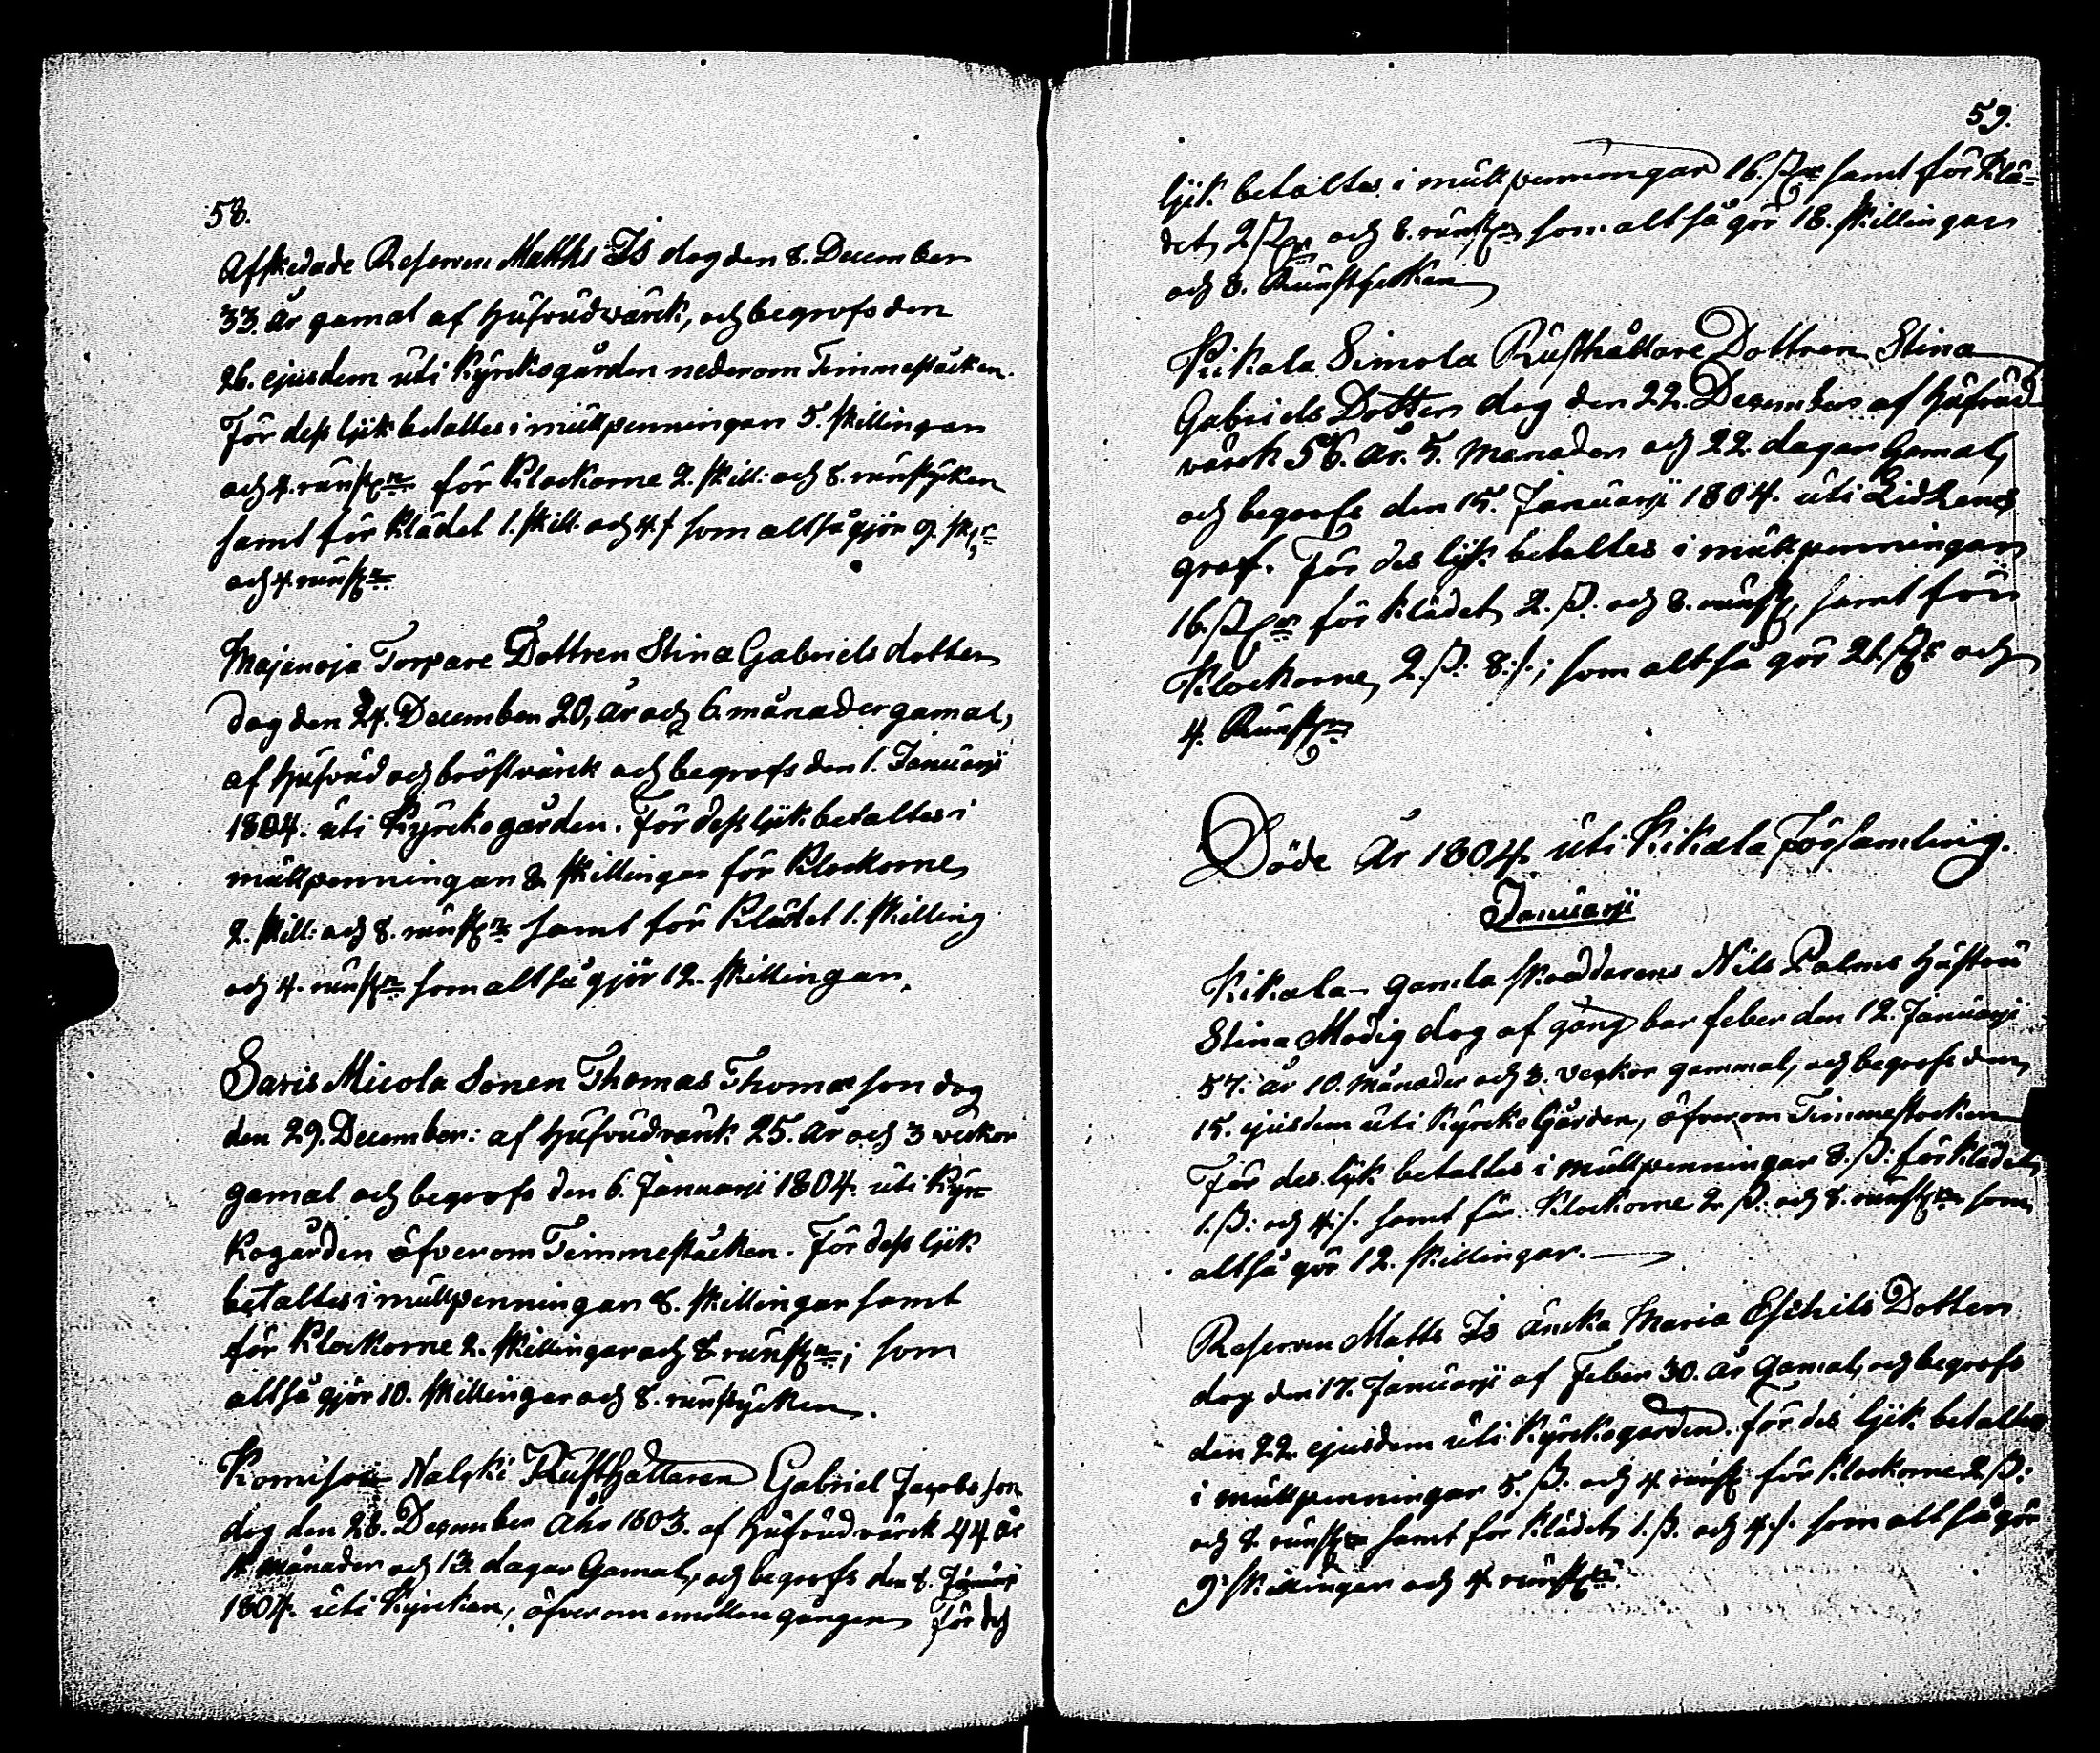 58.
Afskedade Reserven Matths Is dog den 8. December
33. år gamal af Hufvudvärck, och begrofs den
26. ejusdem uti Kyrckogården nederom Timmestäcken.
För dess lijk betaltes i mullpenningar 5. skillingar
och 4. runst:r för Klockorne 2. skill: och 8. runstycken
samt för Klädet 1. skill. och 4 f som altså gjör 9. sk:r
och 4. runst:r
Majanoja Torpare Dottren Stina Gabriels dotter
dog den 24. December 20, år och 6 månader gamal,
af Hufvud och bröstvärck och begrofs den 1. Januarji
1804. uti Kyrckogården. För dess lijk betaltes i
mullpenningar 8 skillingar för Klockorne
2. skill: och 8. runst:r samt för Klädet 1. skilling
och 4. runst:r som altså gjör 12. skillingar.
Saris Micola Sonen Thomas Thomasson dog
den 29. December: af Hufvudvärck 25. år och 3 veckor
gamal och begrofs den 6. Januarji 1804. uti Kyr=
kogården öfverom Timmestäcken. För dess lijk
betaltes i mullpenningar 8. skillingar samt
för Klockorne 2. skillingar och 8 runst:r; som
altså gjör 10. skillingar och 8. runstycken.
Komisoia Nalcki Rusthållaren Gabriel Jacobsson
dog den 28. December Åhr 1803. af Hufvudvärck 44 år
månader och 13. dagar Gamal, och begrofs den 8. Januarj
1804. uti Kyrckan, öfverom emellan gången För dess
59.
lijk betaltes i mullpenningar 16. ßr samt för Klä=
det, 2 ßr och 8. runst:r som altså gör 18. skillingar
och 8. Runstycken
Kikala Simola Rusthållare Dottren Stina
Gabriels Dotter dog den 22. December af Hufvud
värck 56. år. 5. månader och 22. dagar Gamal,
och begrofs den 15. Januarji 1804. uti Lidhens
graf. För des lijk betaltes i mullpenningar
16. ßr för Klädet, 2. ß. och 8. runst, samt för
Klockorne, 2. ß. 8. f.; som altså gör 21. ßr och
4. Runst:r
Döde År 1804. uti Kikala Församling.
Januarji
Kikala gamla skräddarens Nils Palms Hustru
Stina Modig dog af gångbar feber den 12. Januarji
57. år 10. månader och 3. veckor gammal, och begrofs den
15. ejusdem uti Kyrcko Gården, öfverom Timmestocken
För des lijk betaltes i mullpenningar 8. ß: för Klädet,
1. ß: och 4. f. samt för Klockorne 2. ß. och 8. runst:r som
altså gör 12. skillingar.
Reserven Matts Is äncka Maria Eschils Dotter
dog den 17. Januarji af Feber 30. år Gamal, och begrofs
den 22. ejusdem uti Kyrckogården. För des lijk betaltes
i mullpenningar 5. ß. och 4 runst för Klockorne 2 ß:
och 8. runst:r samt för Klädet, 1. ß. och 4. f. som altså gör
9. skillingar och 4 runst:r